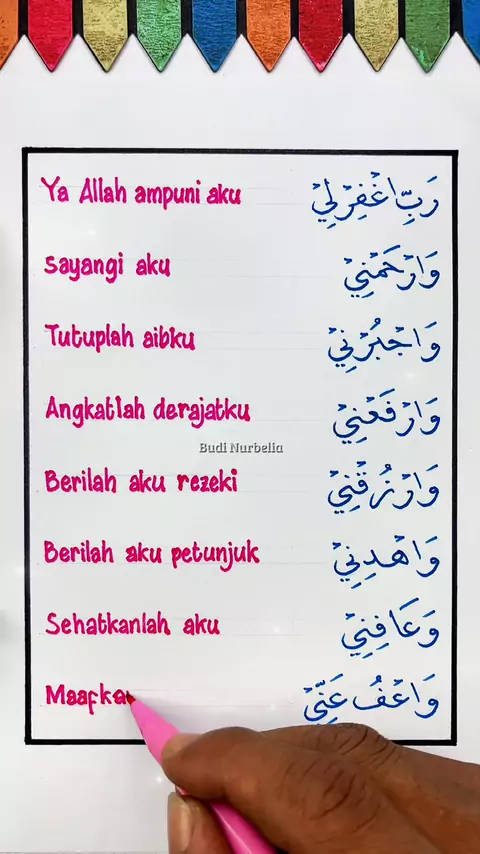 Ya Allah ampuni aku رَبِّ اغْفِرْ لِيْ
sayangi aku وَارْحَمْنِيْ
Tutuplah aibku وَاجْبُرْنِيْ
Angkatlah derajatku وَارْفَعْنِيْ
Budi Nurbelia
Berilah aku rezeki وَارْزُقْنِيْ
Berilah aku petunjuk وَاهْدِنِيْ
Sehatkanlah aku وَعَافِنِيْ
Maafka وَاعْفُ عَنِّيْ